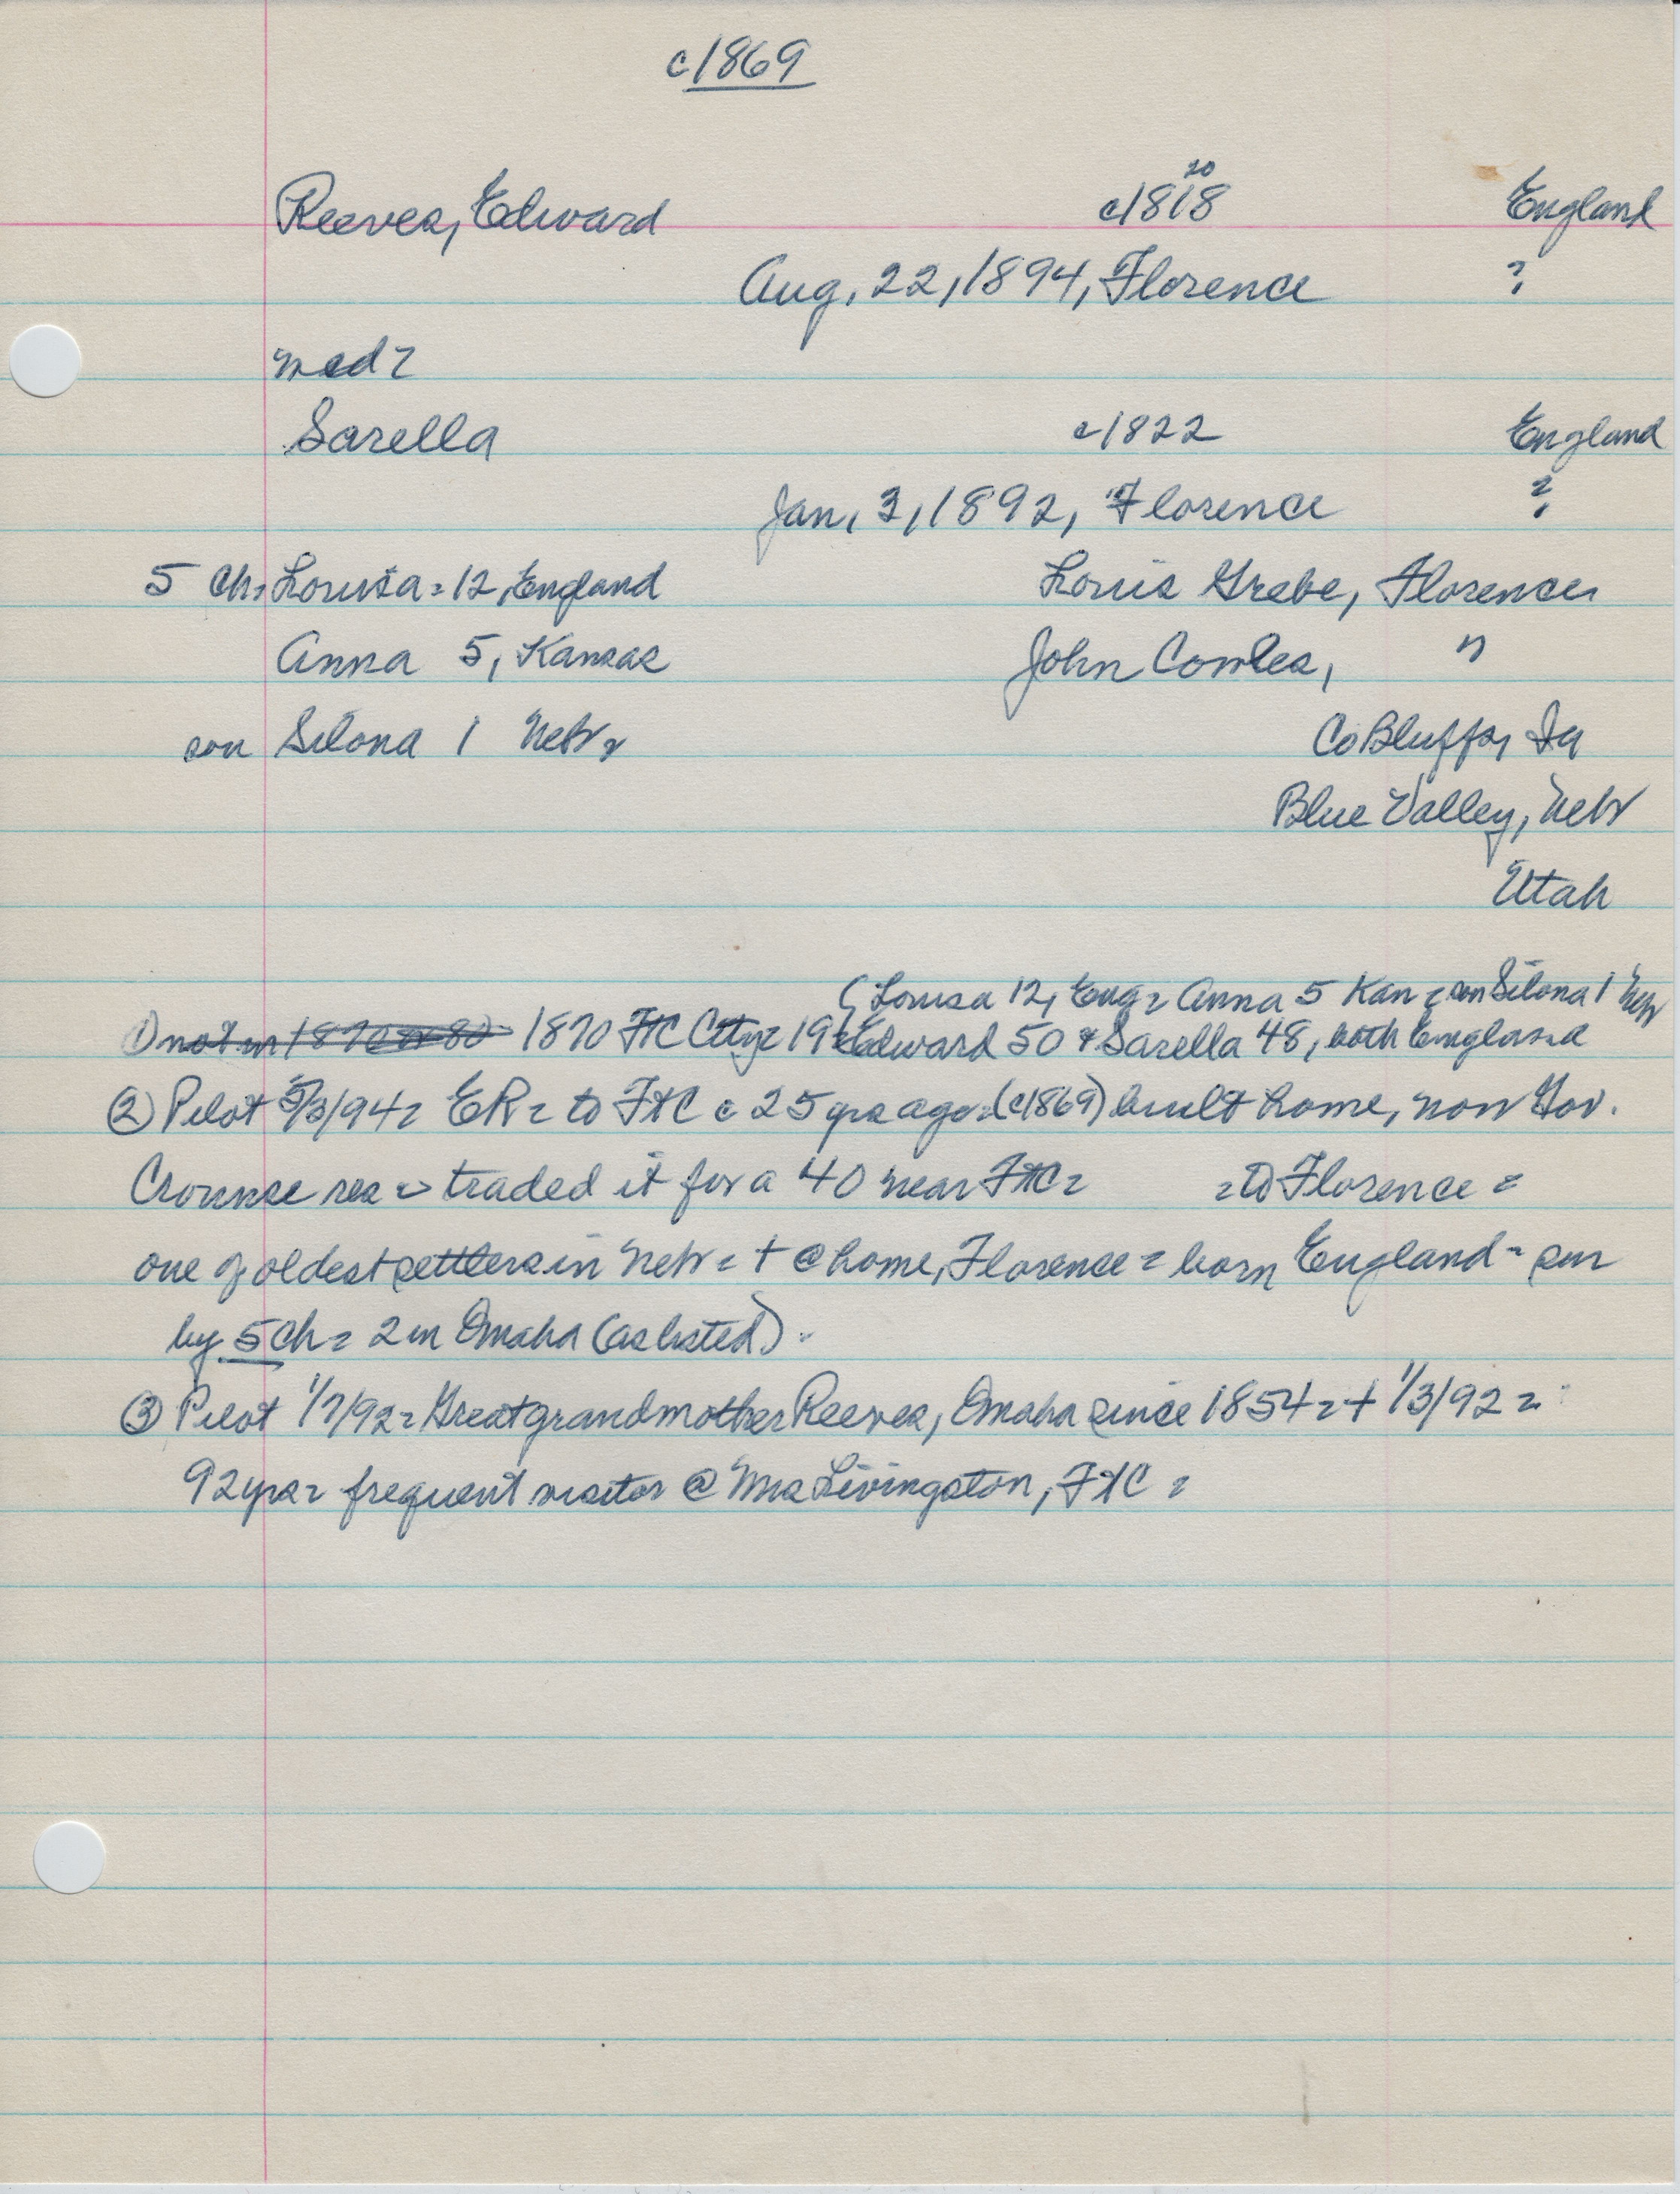 c1869
20
Reeves, Edward c1818 England
Aug, 22, 1894, Florence ?
med=
Sarella c1822 England
Jan, 3, 1892, Florence ?
5 Ch= Louisa=12, England Louis Grebe, Florence
Anna 5, Kansas John Cowles, "
son Silona 1 Nebr= Co Bluffs, Ia
Blue Valley, Nebr
Utah
( Louisa 12, Eng= Anna 5 Kan = son Silona 1 Nebr
① not in 1870 or 80 1870 FtC City= 19= Edward 50 & Sarella 48, both England
② Pilot /3/94= ER= to FtC c 25 yrs ago=(c1869) built home, now Gov.
Crounse res => traded it for a 40 near FtC= =to Florence =
one of oldest settlers in Nebr= + @ home, Florence = born England= sur
by 5 ch= 2 in Omaha (as listed)
③ Pilot 1/7/92= Great grandmother Reeves, Omaha since 1854= + 1/3/92 =
92 yrs= frequent visitor @ Mrs Livingston, FtC =